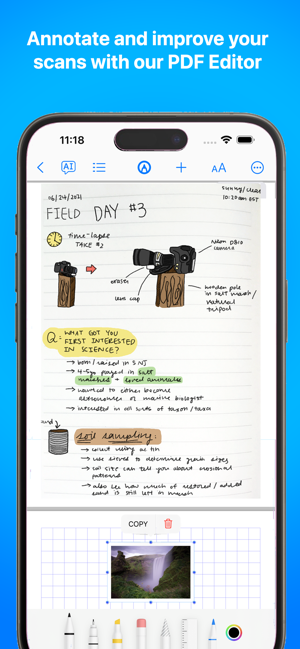 Annotate and improve your
scans with our PDF Editor
11:18
AI
AA
06/24/2021
sunny/clear
10:20am EST
FIELD DAY #3
TIME-LAPSE
TAKE #2
camera
eraser
lens cap
wooden pole
in salt marsh/
natural
tripod
Q: WHAT GOT YOU
FIRST INTERESTED
IN SCIENCE?
→ born/raised in S NJ
→ played in salt
marshes +
→ wanted to either become
astronomer or marine biologist
→ interested in all sorts of
soil sampling:
→ collect using tin
→ use sieves to determine grain sizes
→ soil size can tell you about erosional
patterns
→ also see how much of restored/added
sand is still left in marsh
COPY